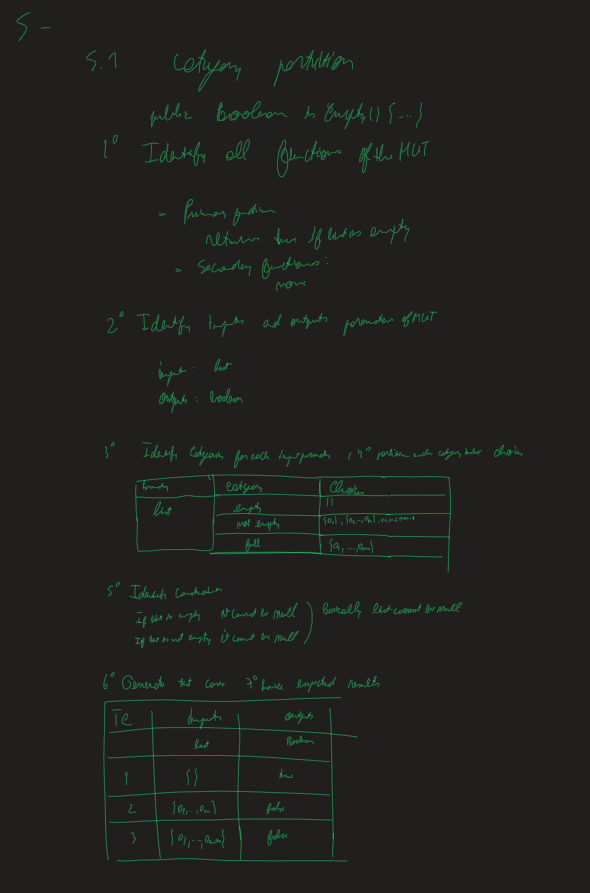 5 -
5.1 Category partition
public Boolean is Empty() {...}
1º Identify all functions of the MUT
- Primary function
returns true if list is empty
- Secondary functions:
none
2º Identify Inputs and outputs parameters of MUT
Input: list
Outputs: boolean
3º Identify Categories for each input parameter, 4º partition each category into choices
Category Choices
list empty {}
not empty
full {a1, ..., amax}
5º Identify Constraints
If list is empty it cannot be null
If list is not empty it cannot be null
Basically list cannot be null
6º Generate test cases 7º expected results
TC Inputs Outputs
list Boolean
1 {} true
2 {a1, ..., an} false
3 {a1, ..., amax} false